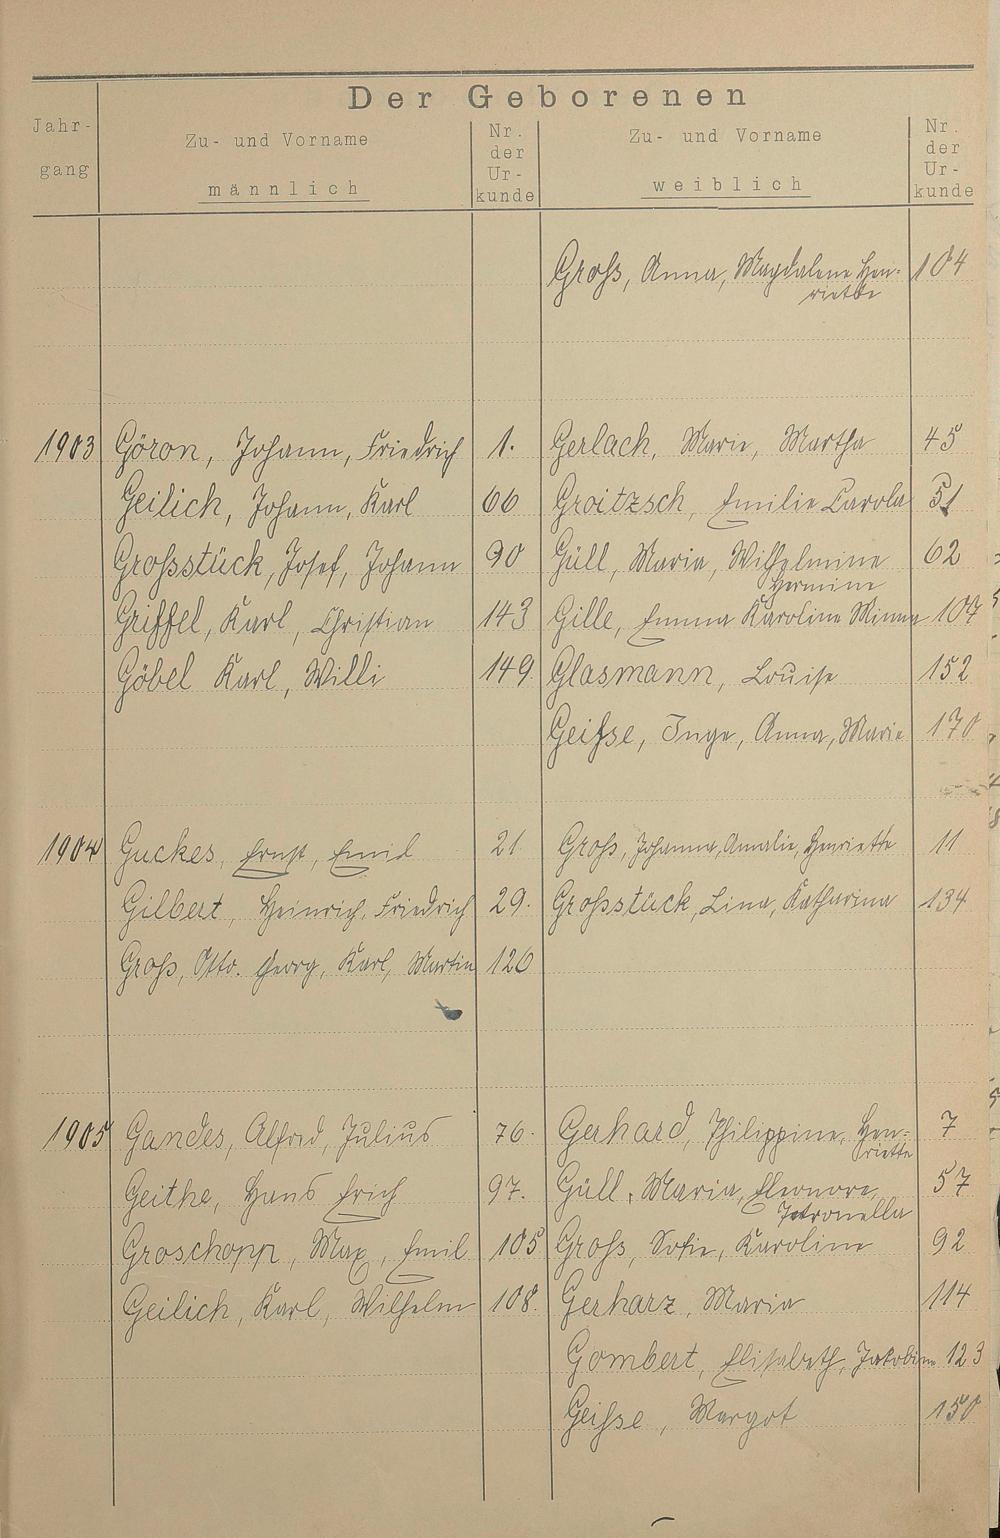 Der Geborenen
Jahr-
gang
Zu- und Vorname
männlich
Nr.
der
Ur-
kunde
Zu- und Vorname
weiblich
Nr.
der
Ur-
kunde
Groß, Anna, Magdalene Hen- 104
riette
1903 Göron, Johann, Friedrich 1. Gerlach, Marie, Martha 45
Geilich, Johann, Karl 66 Groitzsch, Emilie Carola 51
Großstück, Josef, Johann 90 Güll, Maria, Wilhelmine 62
Hermine
Griffel, Karl, Christian 143 Gille, Emma Karoline Minna 107
Göbel Karl, Willi 149 Glasmann, Louise 152
Geißse, Inge, Anna, Marie 170
1904 Guckes, Ernst, Emil 21 Groß, Johanna, Amalie, Henriette 11
Gilbert, Heinrich, Friedrich 29. Großstück, Lina, Katharina 134
Groß, Otto. Georg, Karl, Martin 126
1905 Gandes, Alfred, Julius 76. Gerhard, Philippine, Hen- 7
riette
Geithe, Hans Erich 97. Güll, Maria, Eleonore, 57
Petronella
Groschopp, Max, Emil 105 Groß, Sofie, Karoline 92
Geilich, Karl, Wilhelm 108. Gerharz, Maria 114
Gombert, Elisabeth, Jakobine 123
Geißse, Margot 150